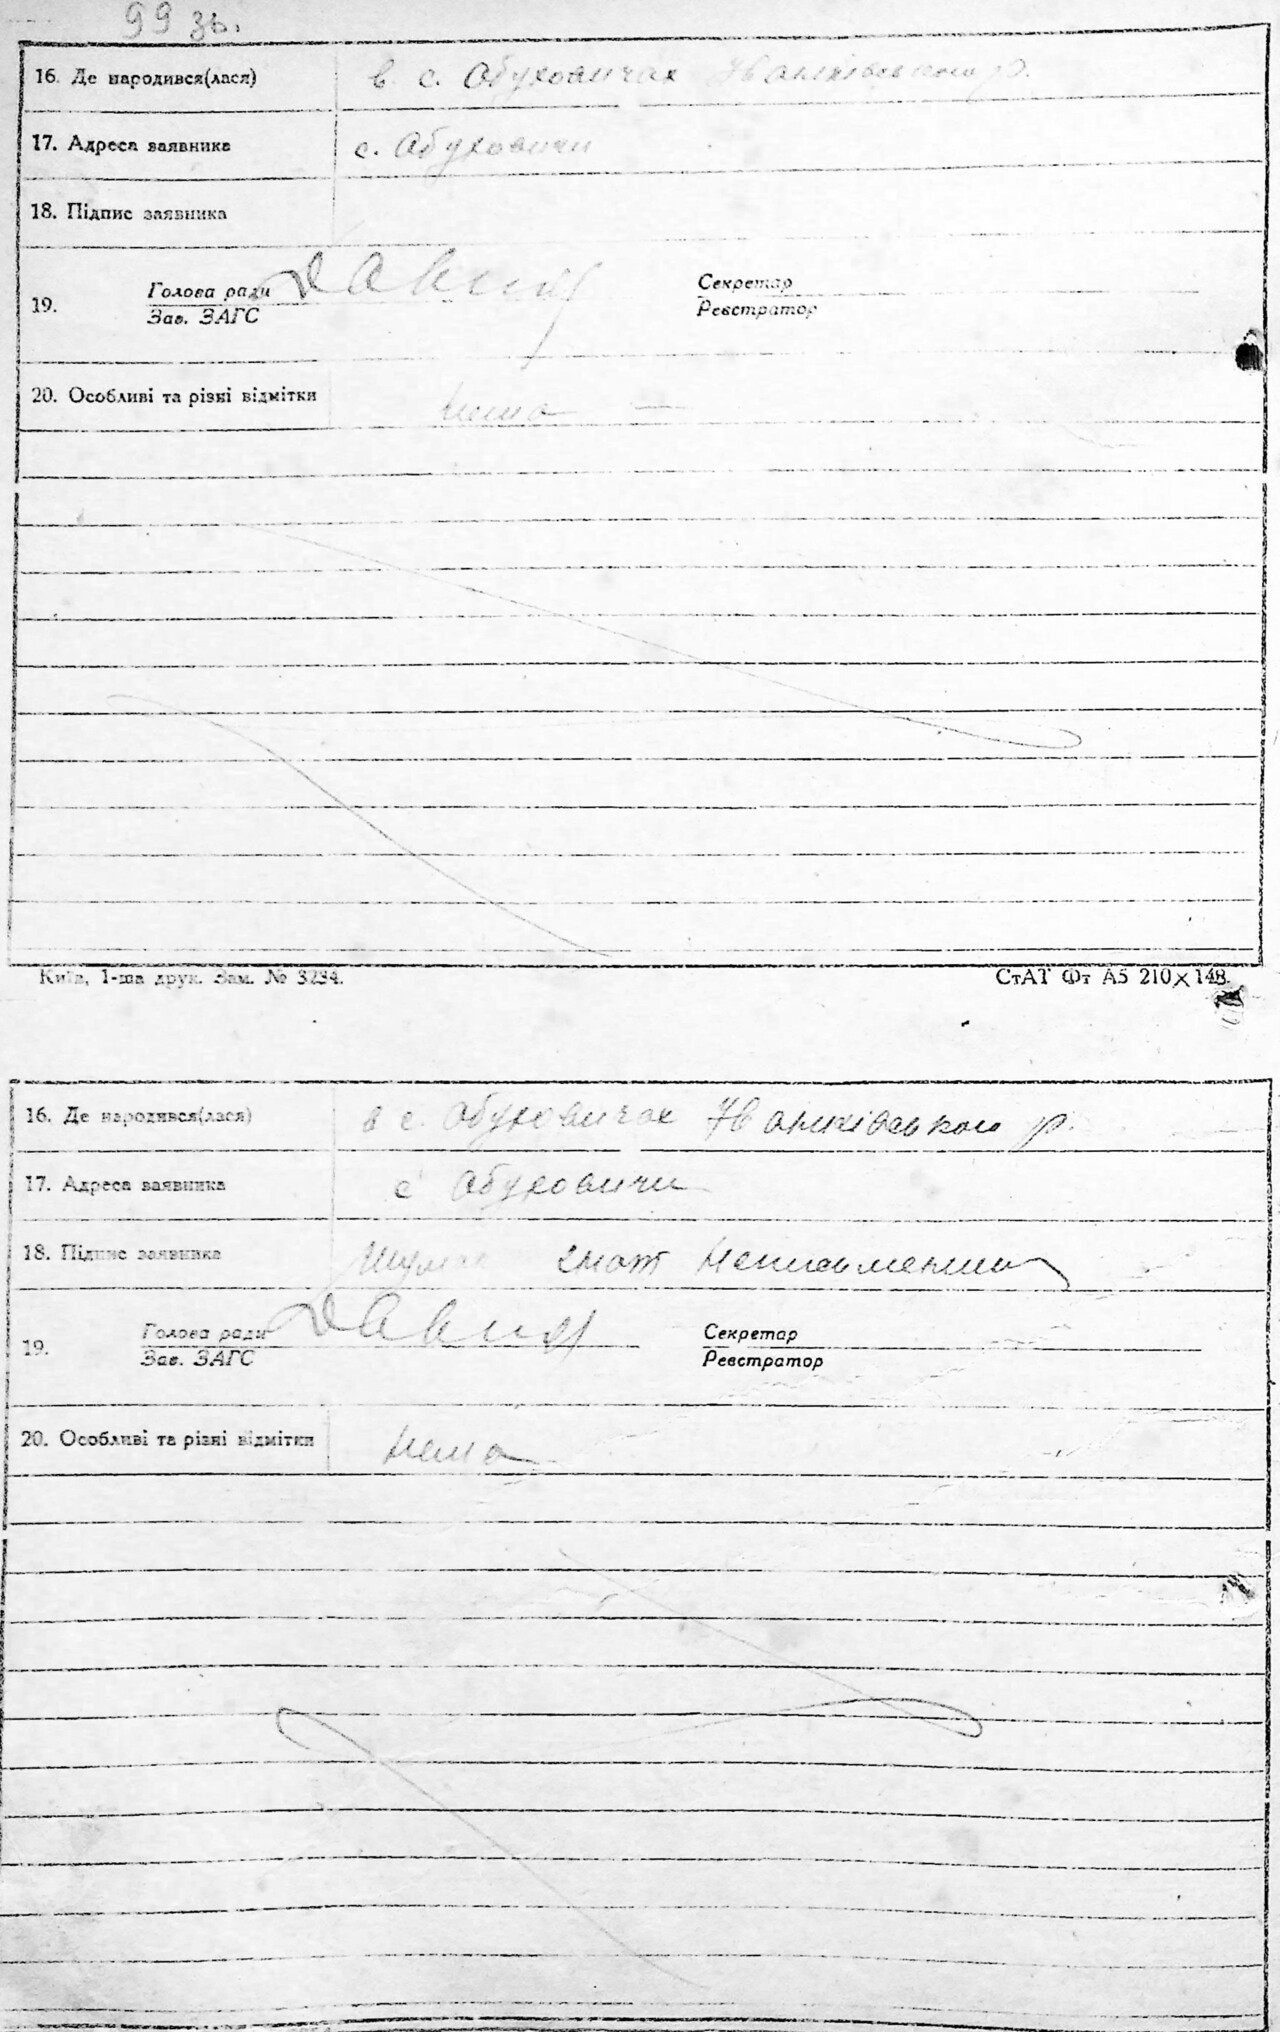 99 зв.
16. Де народився(лася) в с. Обуховичах Іванківського р.
17. Адреса заявника с. Обуховичи
18. Підпис заявника
19. Голова ради Секретар
Зав. ЗАГС Реєстратор
20. Особливі та різні відмітки нема —
Київ, 1-ша друк. Зам. № 3234. СтАТ Фт А5 210×148.
16. Де народився(лася) в с. Обуховичах Іванківського р.
17. Адреса заявника с Обуховичи
18. Підпис заявника
19. Голова ради Секретар
Зав. ЗАГС Реєстратор
20. Особливі та різні відмітки нема